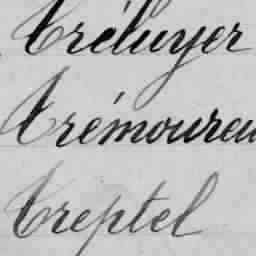 Tréluyer
Trémoureu
Treptel